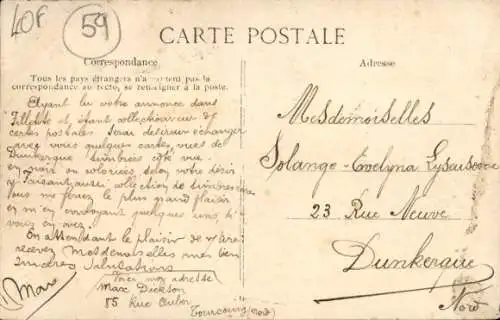 40F
59
CARTE POSTALE
Correspondance
Adresse
Tous les pays étrangers n'acceptent pas la
correspondance au recto, se renseigner à la poste.
Ayant lu votre annonce dans
Fillette et étant collectionneur de
cartes postales Serai désireux échanger
avec vous quelques cartes, vues de
Dunkerque timbrées côté vue.
en noir ou coloriées, selon votre désir
Faisant aussi collection de timbres
vous me ferez le plus grand plaisir
en m'en envoyant quelques uns, si
vous en avez.
En attendant le plaisir de vs lire
recevez Mesdemoiselles mes bien
sincères Salutations
Voici mon adresse
Marc Dickson
85 Rue Auber
Tourcoing (Nord)
Marc
Mesdemoiselles
Solange-Evelyna
23 Rue Neuve
Dunkerque
Nord